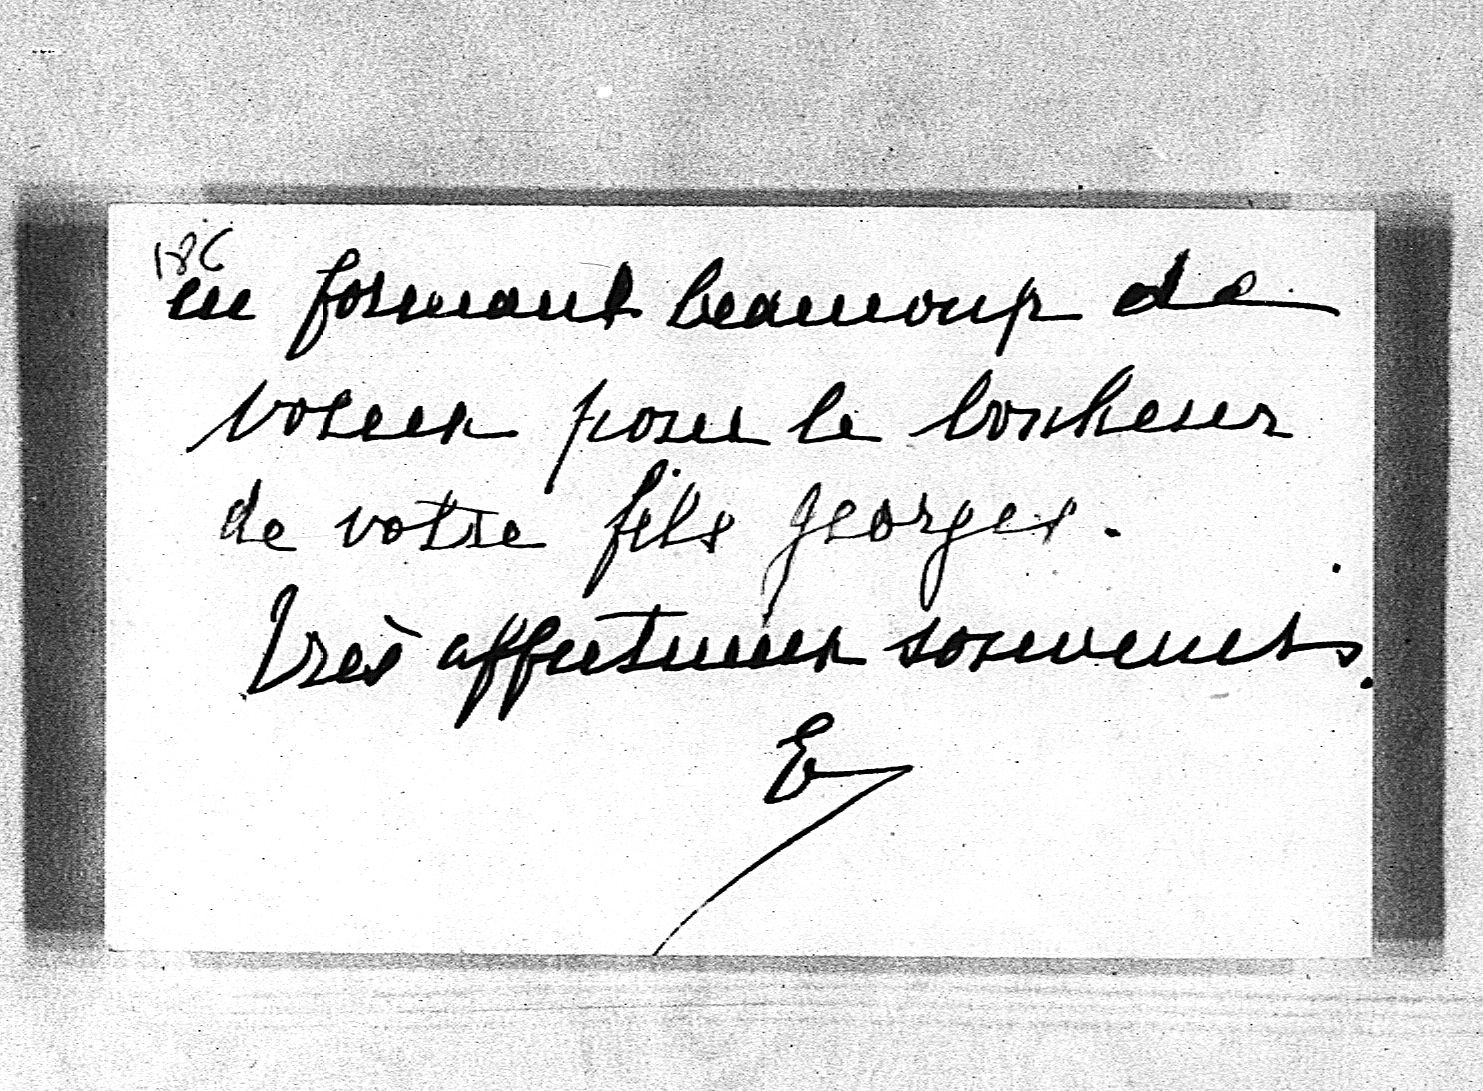 186
en formant beaucoup de
voeux pour le bonheur
de votre fils Georges.
Très affectueux souvenirs.
E